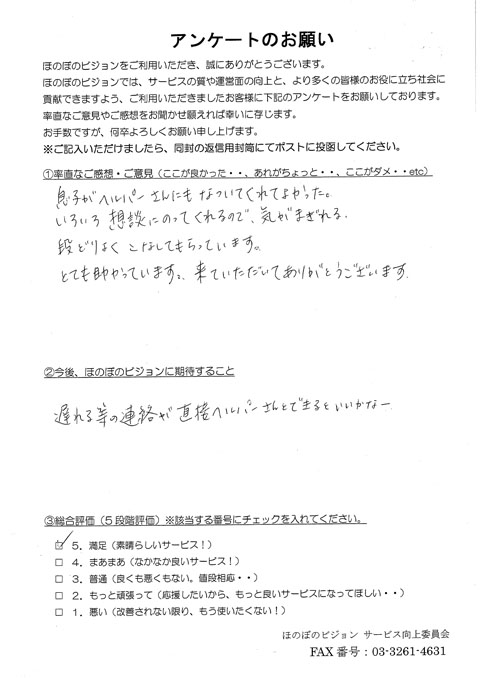 アンケートのお願い
ほのぼのビジョンをご利用いただき、誠にありがとうございます。
ほのぼのビジョンでは、サービスの質や運営面の向上と、より多くの皆様のお役に立ち社会に
貢献できますよう、ご利用いただきましたお客様に下記のアンケートをお願いしております。
率直なご意見やご感想をお聞かせ願えれば幸いに存じます。
お手数ですが、何卒よろしくお願い申し上げます。
※ご記入いただけましたら、同封の返信用封筒にてポストに投函してください。
①率直なご感想・ご意見（ここが良かった・・、あれがちょっと・・、ここがダメ・・etc）
息子がヘルパーさんにもなついてくれてよかった。
いろいろ想談にのってくれるので、気がまぎれる。
段どりよくこなしてもらっています。
とても助かっています。来ていただいてありがとうございます。
②今後、ほのぼのビジョンに期待すること
遅れる等の連絡が直接ヘルパーさんとできるといいかなー
③総合評価（5段階評価）※該当する番号にチェックを入れてください。
☑ 5．満足（素晴らしいサービス！）
□ 4．まあまあ（なかなか良いサービス！）
□ 3．普通（良くも悪くもない。値段相応・・）
□ 2．もっと頑張って（応援したいから、もっと良いサービスになってほしい・・）
□ 1．悪い（改善されない限り、もう使いたくない！）
ほのぼのビジョン サービス向上委員会
FAX 番号：03-3261-4631